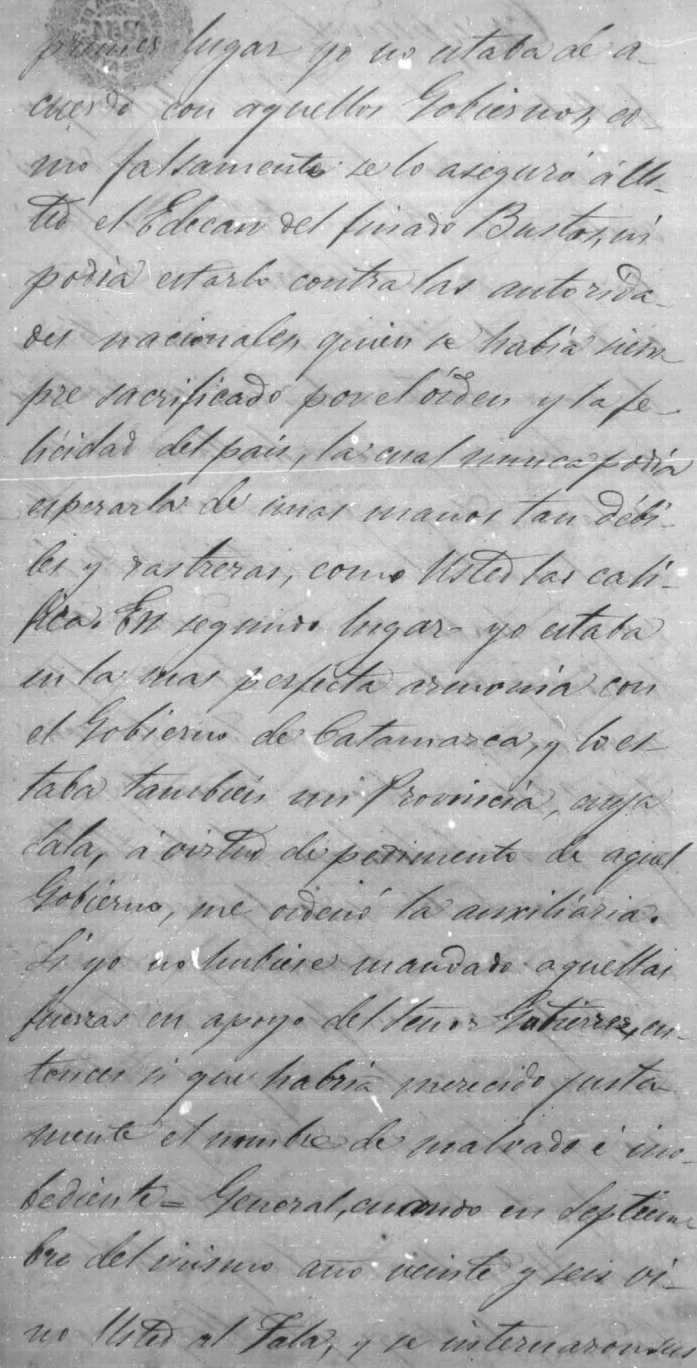 primer lugar yo no estaba de a-
cuerdo con aquellos Gobiernos, co-
mo falsamente se lo aseguró á Us-
ted el Edecan del finado Bustos, ni
podia estarlo contra las autorida-
des nacionales, quien se habia siem
pre sacrificado por el órden y la fe-
licidad del pais, la cual nunca podia
esperarla de unas manos tan débi-
les y rastreras, como Usted las cali-
fica. En segundo lugar yo estaba
en la mas perfecta armonia con
el Gobierno de Catamarca, y lo es-
taba tambien mi Provincia, cuya
Sala, á virtud de pedimento de aquel
Gobierno, me ordenó la auxiliaria.
Si yo no hubiese mandado aquellas
fuerzas en apoyo del Señor Gutierrez, en-
tonces si que habria merecido justa
mente el nombre de malvado é ino-
bediente = General, cuando en Septiem
bre del mismo año veinte y seis vi-
no Usted al Tala, y se internaron sus